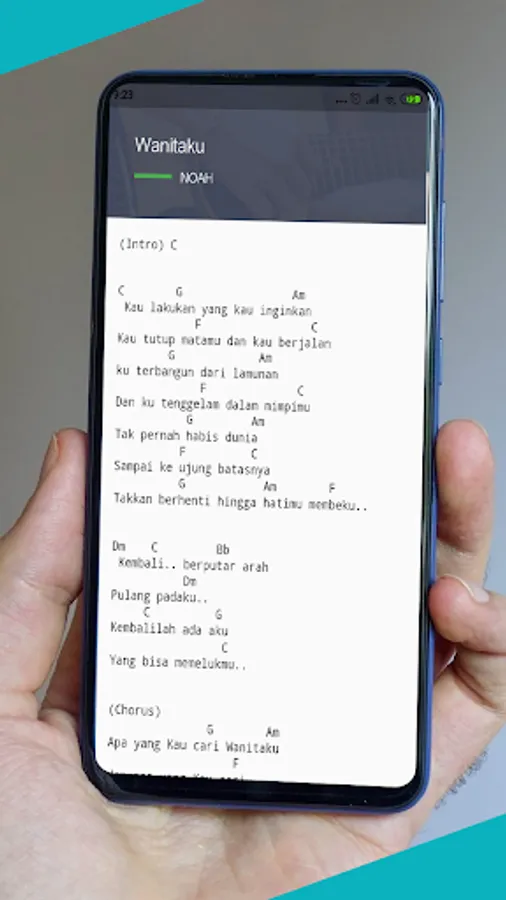 9:23
Wanitaku
NOAH
(Intro) C
C G Am
Kau lakukan yang kau inginkan
F C
Kau tutup matamu dan kau berjalan
G Am
ku terbangun dari lamunan
F C
Dan ku tenggelam dalam mimpimu
G Am
Tak pernah habis dunia
F C
Sampai ke ujung batasnya
G Am F
Takkan berhenti hingga hatimu membeku..
Dm C Bb
Kembali.. berputar arah
Dm
Pulang padaku..
C G
Kembalilah ada aku
C
Yang bisa memelukmu..
(Chorus)
G Am
Apa yang Kau cari Wanitaku
F